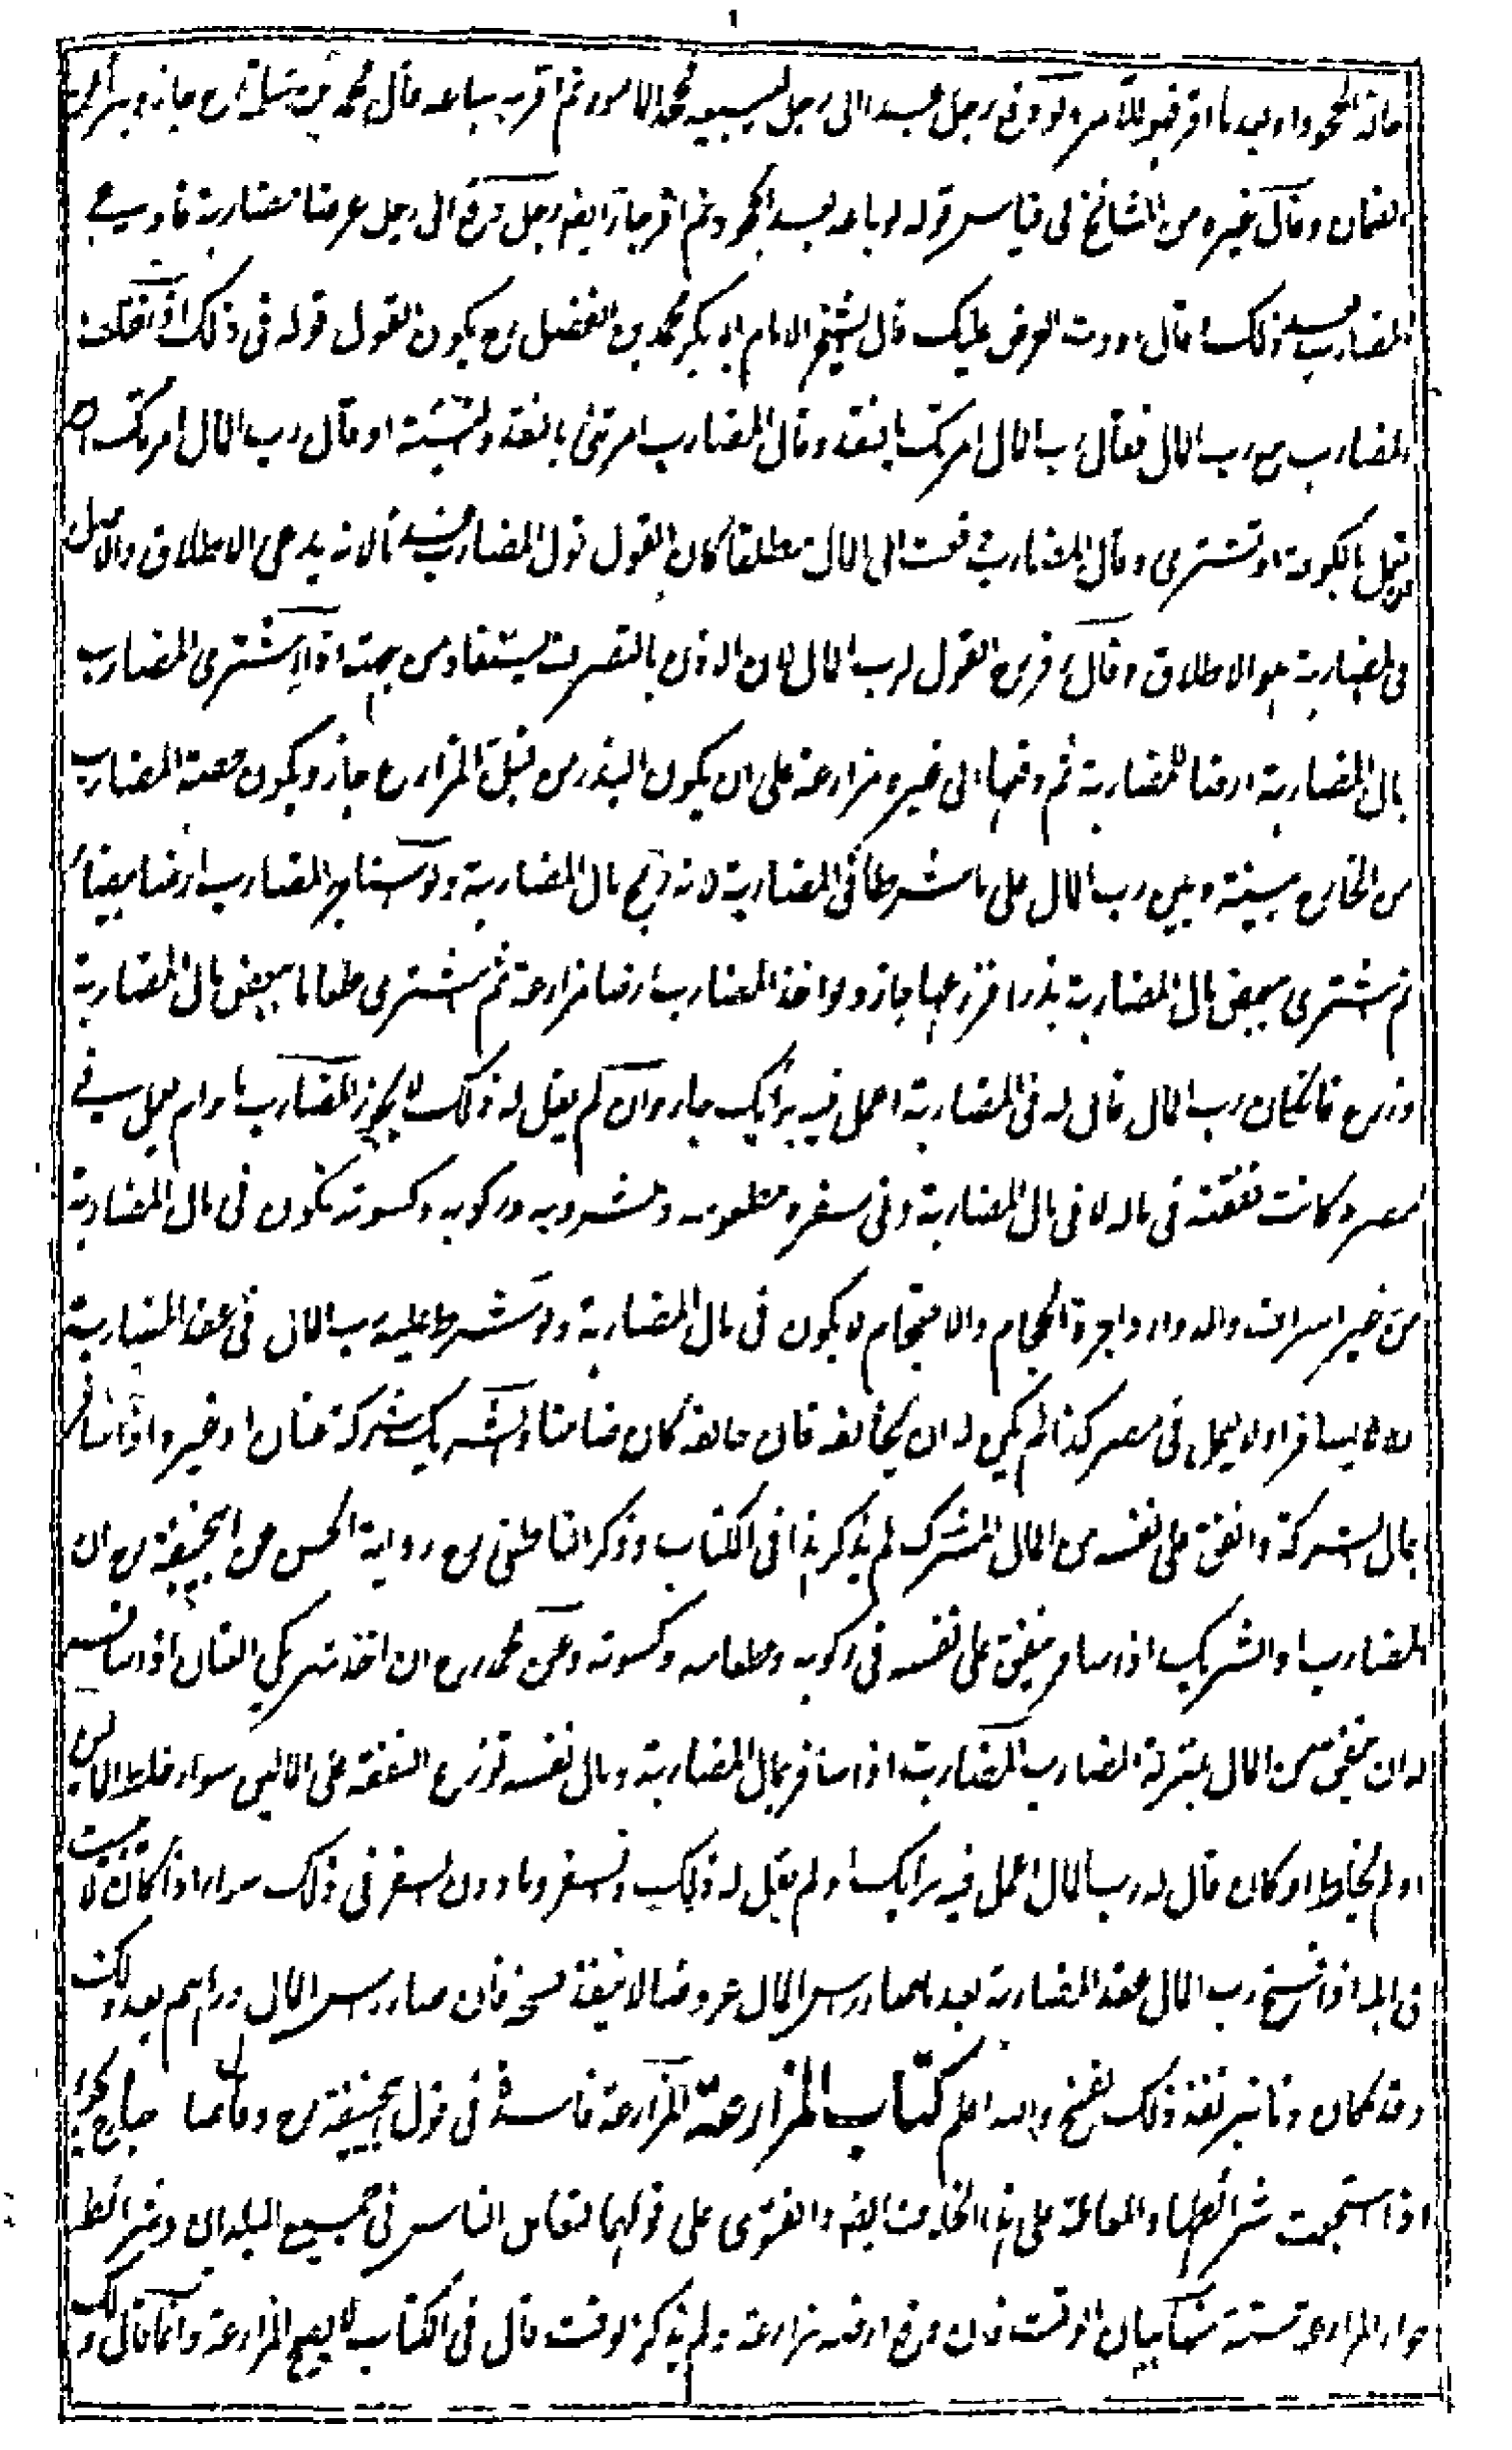 حالة الجحود او بعد ما اقر فهو للآمر ولو دفع رجل عبدا الى رجل ليبيعه فجحد المامور ثم اقر به فباعه قال محمد بن سلمة رح جاز ويبرأ من
الضمان وقال غيره من المشائخ في قياس قوله لو باعه بعد الجحود ثم اقر جاز ايضا رجل دفع الى رجل عرضا مضاربة فادعى
المضارب بعد ذلك وقال رددت العرض عليك قال الشيخ الامام ابو بكر محمد بن الفضل رح يكون القول قوله في ذلك اذا اختلف
المضارب مع رب المال فقال رب المال امرتك بالنقد وقال المضارب امرتني بالنقد والنسيئة او قال رب المال امرتك ان
تعمل بالكوفة او تشتري وقال المضارب دفعت الي المال مطلقا كان القول قول المضارب عندنا لانه يدعي الاطلاق والاصل
في المضاربة هو الاطلاق وقال زفر رح القول لرب المال لان الاذن بالتصرف يستفاد من جهته اذا اشترى المضارب
بمال المضاربة ارضا للمضاربة ثم دفعها الى غيره مزارعة على ان يكون البذر من قبل المزارع جاز ويكون حصة المضارب
من الخارج بينه وبين رب المال على ما شرطا في المضاربة لانه ربح مال المضاربة ولو استاجر المضارب ارضا بيضاء
ثم اشترى ببعض مال المضاربة بذرا فزرعها جاز ولو اخذ المضارب ارضا مزارعة ثم اشترى طعاما ببعض مال المضاربة
وزرع فان كان رب المال قال له في المضاربة اعمل فيه برأيك جاز وان لم يقل له ذلك لا يجوز المضارب ما دام يعمل في
مصره كانت نفقته في ماله لا في مال المضاربة وفي سفره مطعومه ومشروبه وركوبه وكسوته تكون في مال المضاربة
من غير اسراف والدواء واجرة الحجام والاحتجام لا يكون في مال المضاربة ولو شرط عليه رب المال في عقد المضاربة
ان لا يسافر او لا يعمل في مصر كذا لم يكن له ان يخالفه فان خالفه كان ضامنا والشريك شركة عنان او غيره اذا سافر
بمال الشركة وانفق على نفسه من المال المشترك لم يذكر هذا في الكتاب وذكر الناطفي رح رواية الحسن عن ابي حنيفة رح ان
المضارب والشريك اذا سافر ينفق على نفسه في ركوبه وطعامه وكسوته وعن محمد رح ان احد شريكي العنان اذا سافر
له ان ينفق من المال بمنزلة المضارب المضارب اذا سافر بمال المضاربة ومال نفسه توزع النفقة على المالين سواء خلط المالين
او لم يخلط او كان قال له رب المال اعمل فيه برأيك او لم يقل له ذلك والسفر وما دون السفر في ذلك سواء اذا كان لا يبيت
في اهله اذا فسخ رب المال عقد المضاربة بعد ما صار رأس المال عروضا لا ينفذ فسخه فان صار رأس المال دراهم بعد ذلك
وقد كان دنانير نفذ ذلك الفسخ والله اعلم كتاب المزارعة المزارعة فاسدة في قول ابي حنيفة رح وقالا صاحباه جائزة
اذا استجمعت شرائطها والمعاملة على هذا الخلاف ايضا والفتوى على قولهما لتعامل الناس في جميع البلدان وشرائط
جواز المزارعة ستة منها بيان الوقت فان دفع ارضه مزارعة ولم يذكر الوقت قال في الكتاب لا يصح المزارعة وانما قال ذلك